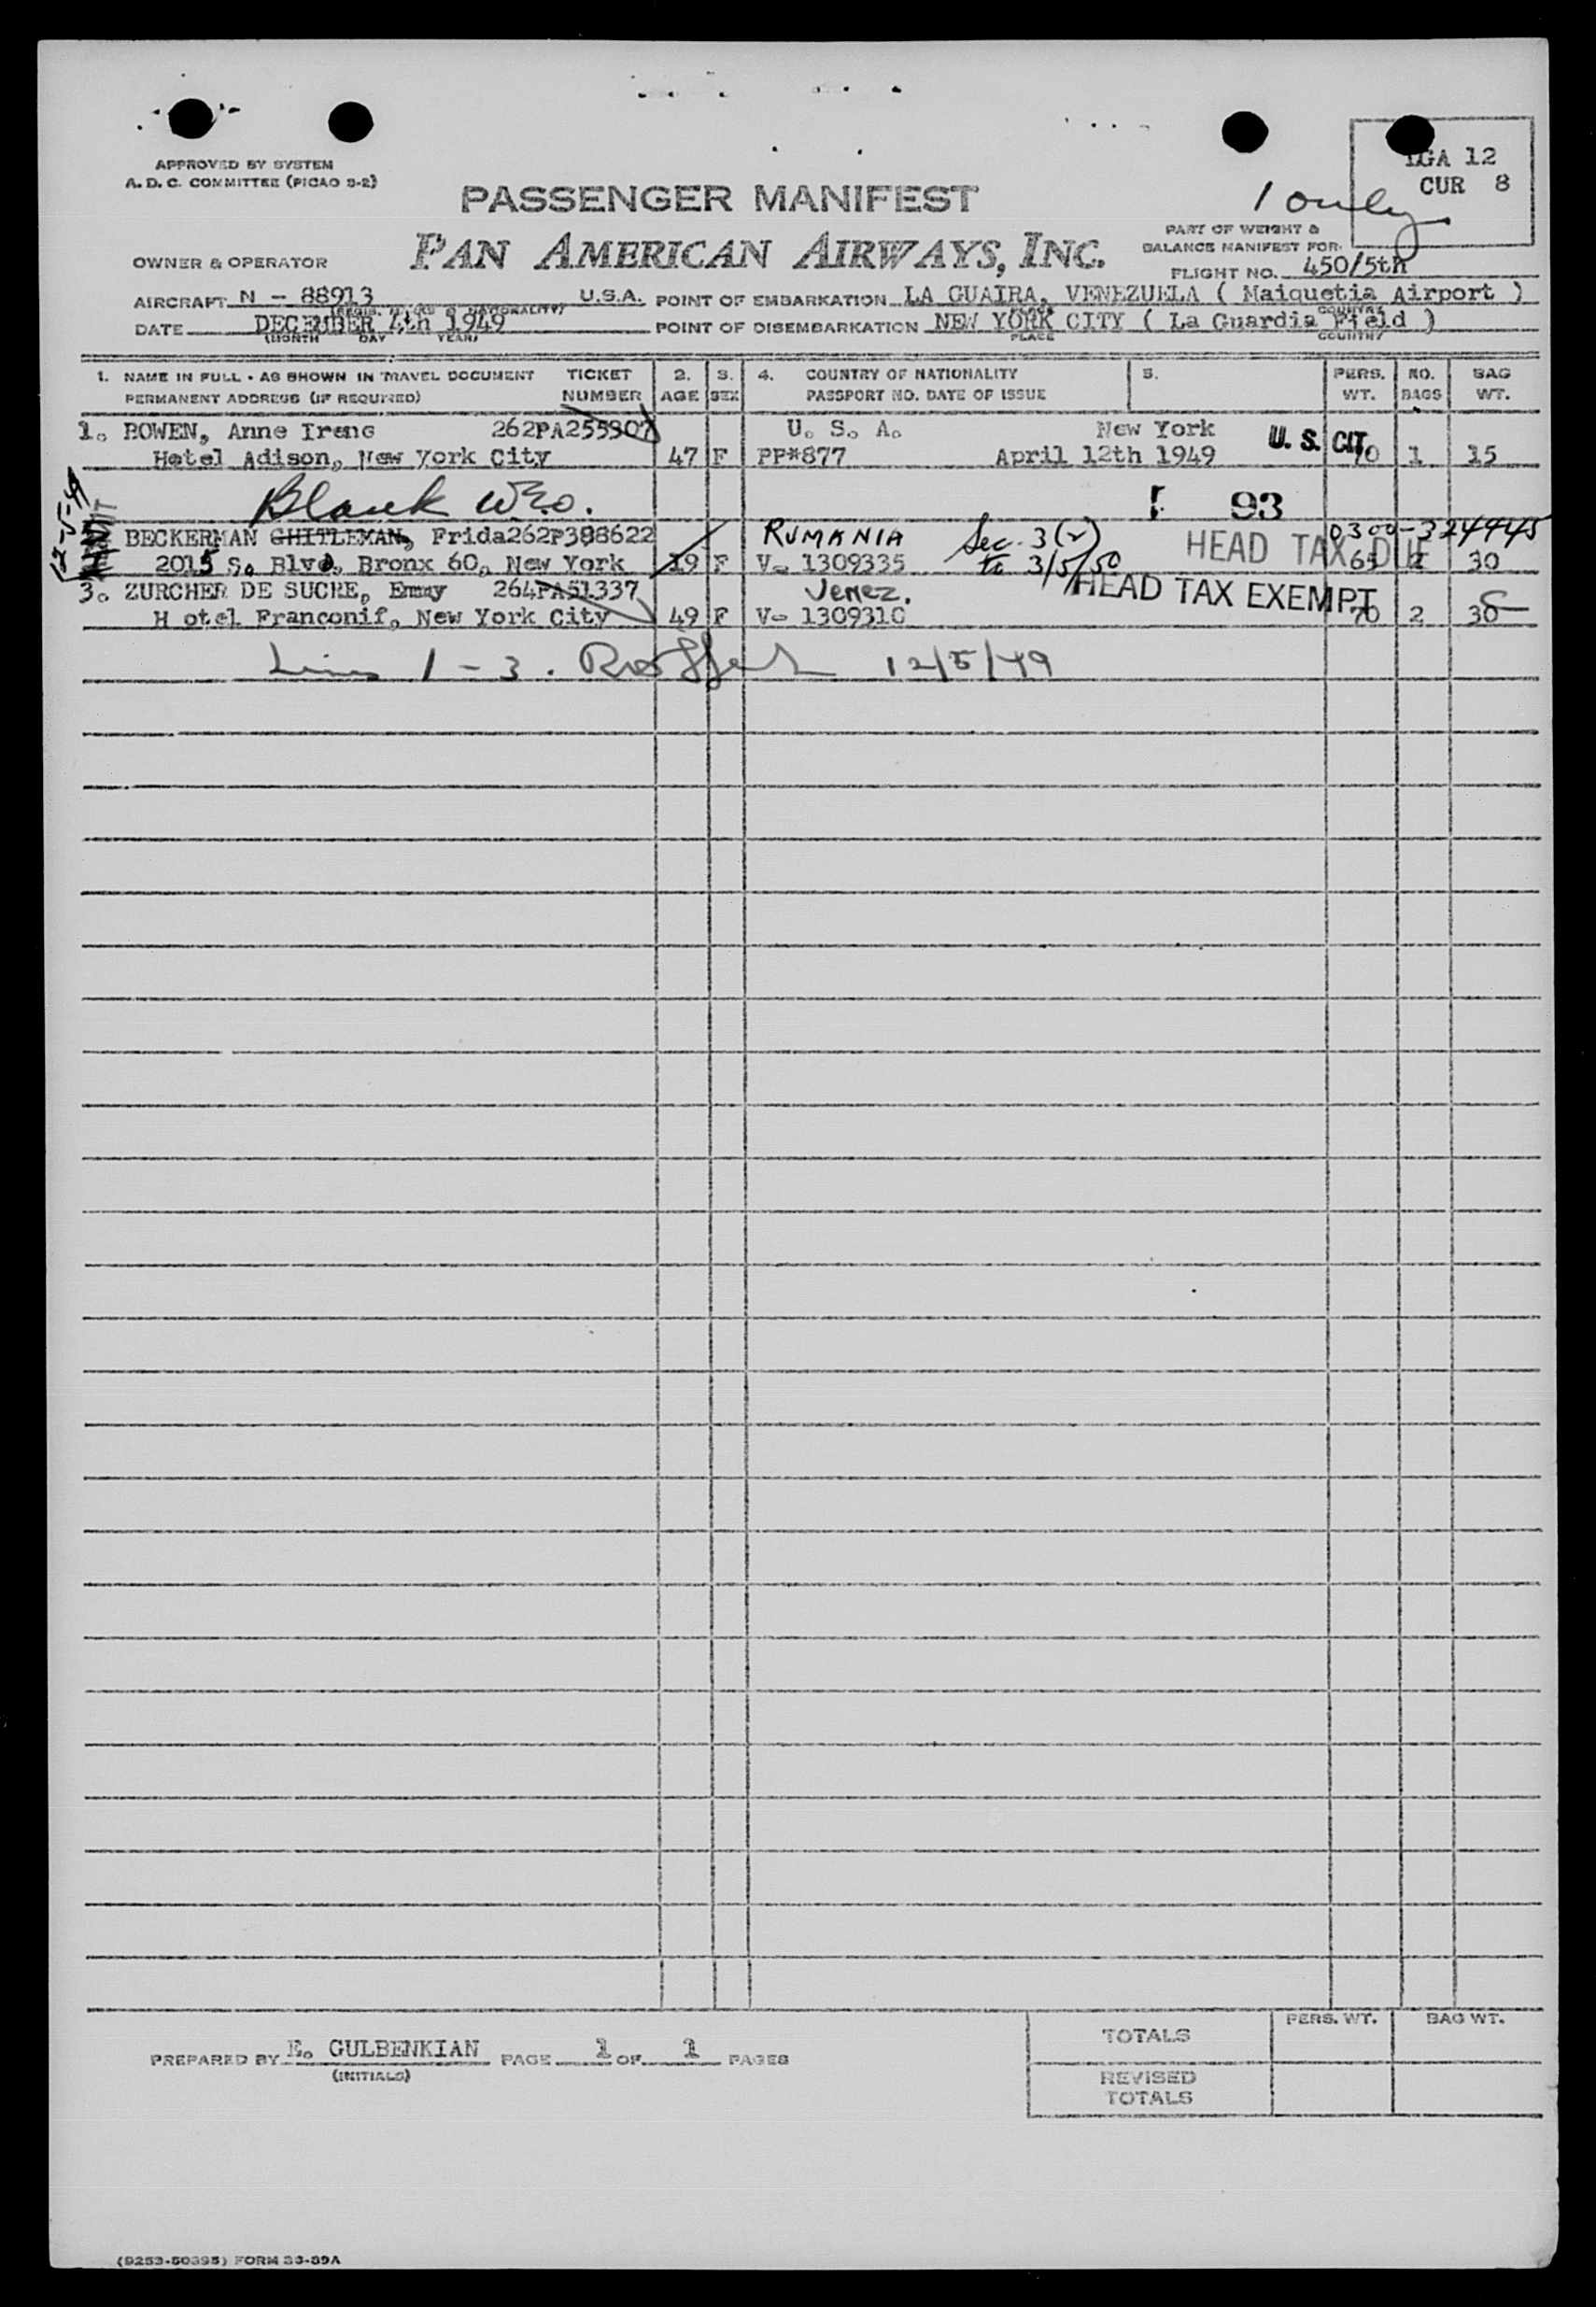 APPROVED BY SYSTEM
A. D. C. COMMITTEE (PICAO S-2)
LGA 12
CUR 8
1 only
PASSENGER MANIFEST
PART OF WEIGHT &
BALANCE MANIFEST FOR
OWNER & OPERATOR PAN AMERICAN AIRWAYS, INC. FLIGHT NO. 450/5th
AIRCRAFT N - 88913 U.S.A. POINT OF EMBARKATION LA GUAIRA, VENEZUELA ( Maiquetia Airport )
(REGIS. MARKS & NATIONALITY) COUNTRY
DATE DECEMBER 4th 1949 POINT OF DISEMBARKATION NEW YORK CITY ( La Guardia Field )
(MONTH DAY YEAR) PLACE COUNTRY
1. NAME IN FULL - AS SHOWN IN TRAVEL DOCUMENT TICKET 2. 3. 4. COUNTRY OF NATIONALITY 5. PERS. NO. BAG
PERMANENT ADDRESS (IF REQUIRED) NUMBER AGE SEX PASSPORT NO. DATE OF ISSUE WT. BAGS WT.
1. BOWEN, Anne Irene 262PA255907 U. S. A. New York U. S. CIT
Hotel Adison, New York City 47 F PP*877 April 12th 1949 70 1 15
Blank
T 93
12-5-49
BECKERMAN GHITLEMAN, Frida 262P388622 RUMANIA Sec. 3(2) HEAD TAX DUE 0300-324445
2015 S. Blvd. Bronx 60, New York 19 F V- 1309335 to 3/5/50 65 30
3. ZURCHER DE SUCRE, Emmy 264PA51337 Venez. HEAD TAX EXEMPT
H otel Franconif, New York City 49 F V- 1309310 70 2 30
Lines 1 - 3. 12/5/49
PREPARED BY E. GULBENKIAN PAGE 1 OF 1 PAGES
(INITIALS)
TOTALS PERS. WT. BAG WT.
REVISED
TOTALS
(9253-50395) FORM 33-39A